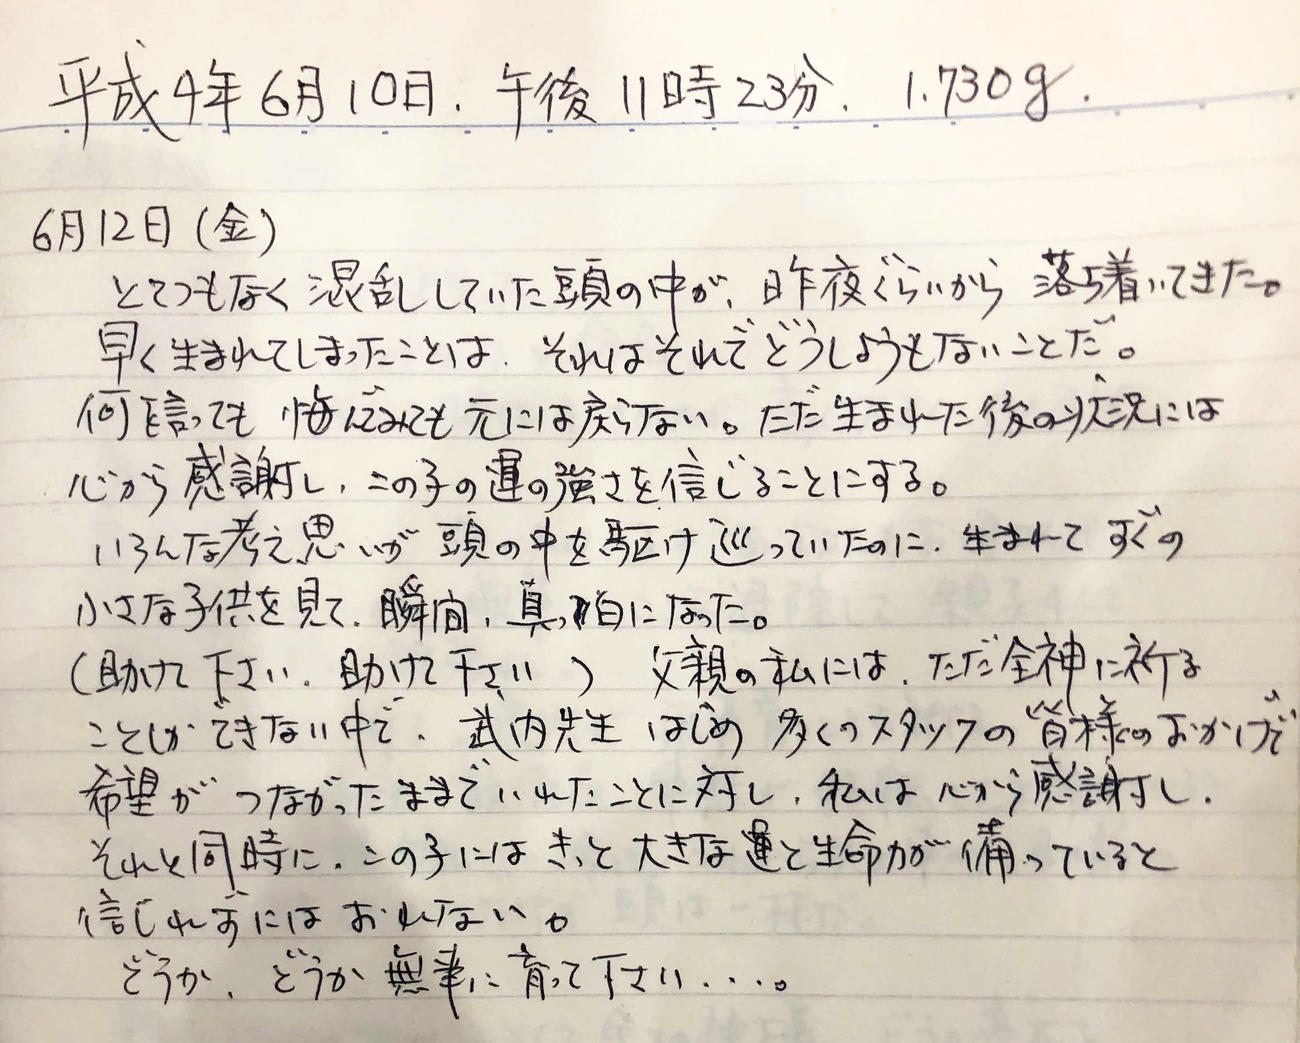 平成4年6月10日. 午後11時23分. 1.730g.
6月12日(金)
とてつもなく混乱していた頭の中が、昨夜ぐらいから落ち着いてきた。
早く生まれてしまったことは、それはそれでどうしようもないことだ。
何を言っても悔んでみても元には戻らない。ただ生まれた後の状況には
心から感謝し、この子の運の強さを信じることにする。
いろんな考え思いが頭の中を駆け巡っていたのに、生まれてすぐの
小さな子供を見て、瞬間、真っ白になった。
(助けて下さい、助けて下さい) 父親の私には、ただ全神に祈る
ことしかできない中で、武内先生はじめ多くのスタッフの皆様のおかげで
希望がつながったままでいれたことに対し、私は心から感謝し、
それと同時に、この子にはきっと大きな運と生命力が備っていると
信じれずにはおれない。
どうか、どうか無事に育って下さい・・・。